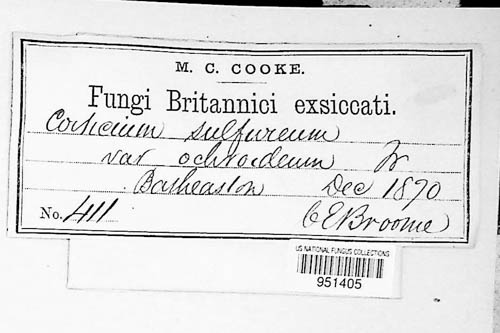 M. C. COOKE.
Fungi Britannici exsiccati.
Corticium sulfureum
var ochroideum Fr
Batheaston Dec 1870
No. 411 C E Broome
US NATIONAL FUNGUS COLLECTIONS
951405